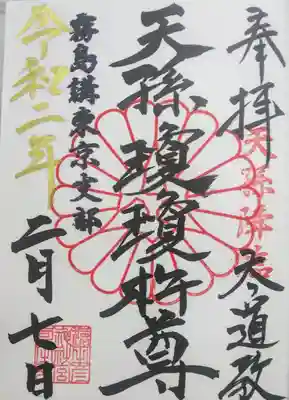 奉拝
天孫降臨
冬道教
天孫瓊瓊杵尊
霧島講東京支部
令和二年
二月七日